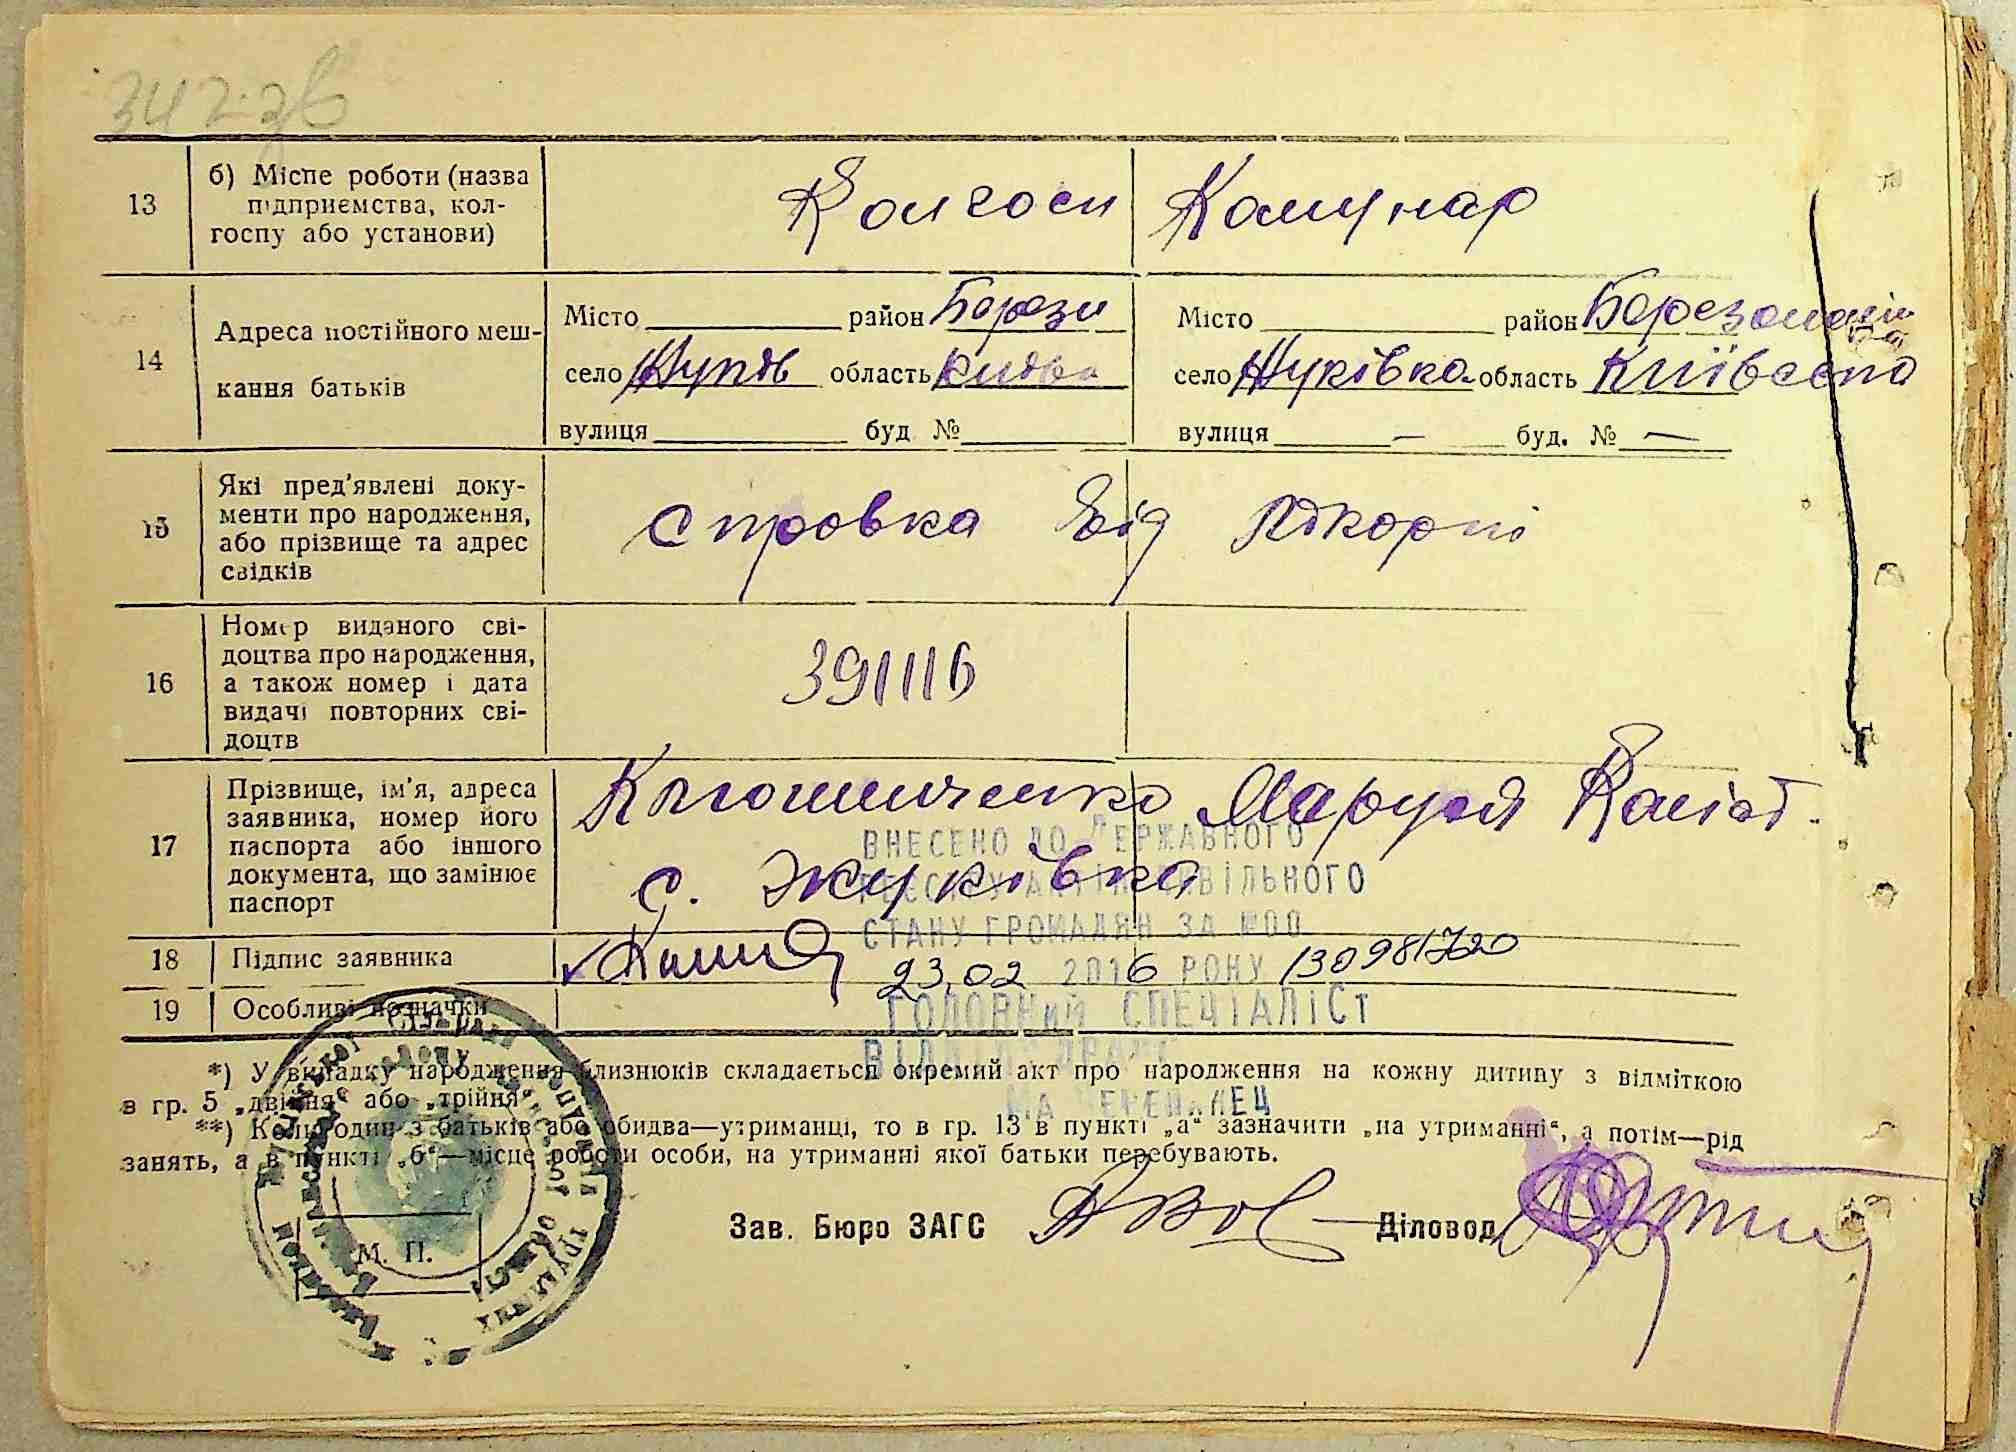 342зв
13
б) Місце роботи (назва
підприємства, кол-
госпу або установи)
Колгосп Комунар
14
Адреса постійного меш-
кання батьків
Місто район Березан
село область
вулиця буд №
Місто район
село Жуківка область Київська
вулиця — буд. № —
15
Які пред'явлені доку-
менти про народження,
або прізвище та адрес
свідків
Справка від
16
Номер виданого сві-
доцтва про народження,
а також номер і дата
видачі повторних сві-
доцтв
391116
17
Прізвище, ім'я, адреса
заявника, номер його
паспорта або іншого
документа, що замінює
паспорт
Маруся
с. Жуківка
ВНЕСЕНО ДО ДЕРЖАВНОГО
РЕЄСТРУ АКТІВ ЦИВІЛЬНОГО
СТАНУ ГРОМАДЯН ЗА №00
18
Підпис заявника
23.02 2016 РОКУ 130981720
19
Особливі позначки
ГОЛОВНИЙ СПЕЦІАЛІСТ
*) У випадку народження близнюків складається окремий акт про народження на кожну дитину з відміткою
в гр. 5 „двійня“ або „трійня“.
**) Коли один з батьків або обидва—утриманці, то в гр. 13 в пункті „а“ зазначити „на утриманні“, а потім—рід
занять, а в пункті „б“—місце роботи особи, на утриманні якої батьки перебувають.
Зав. Бюро ЗАГС
Діловод
М. П.